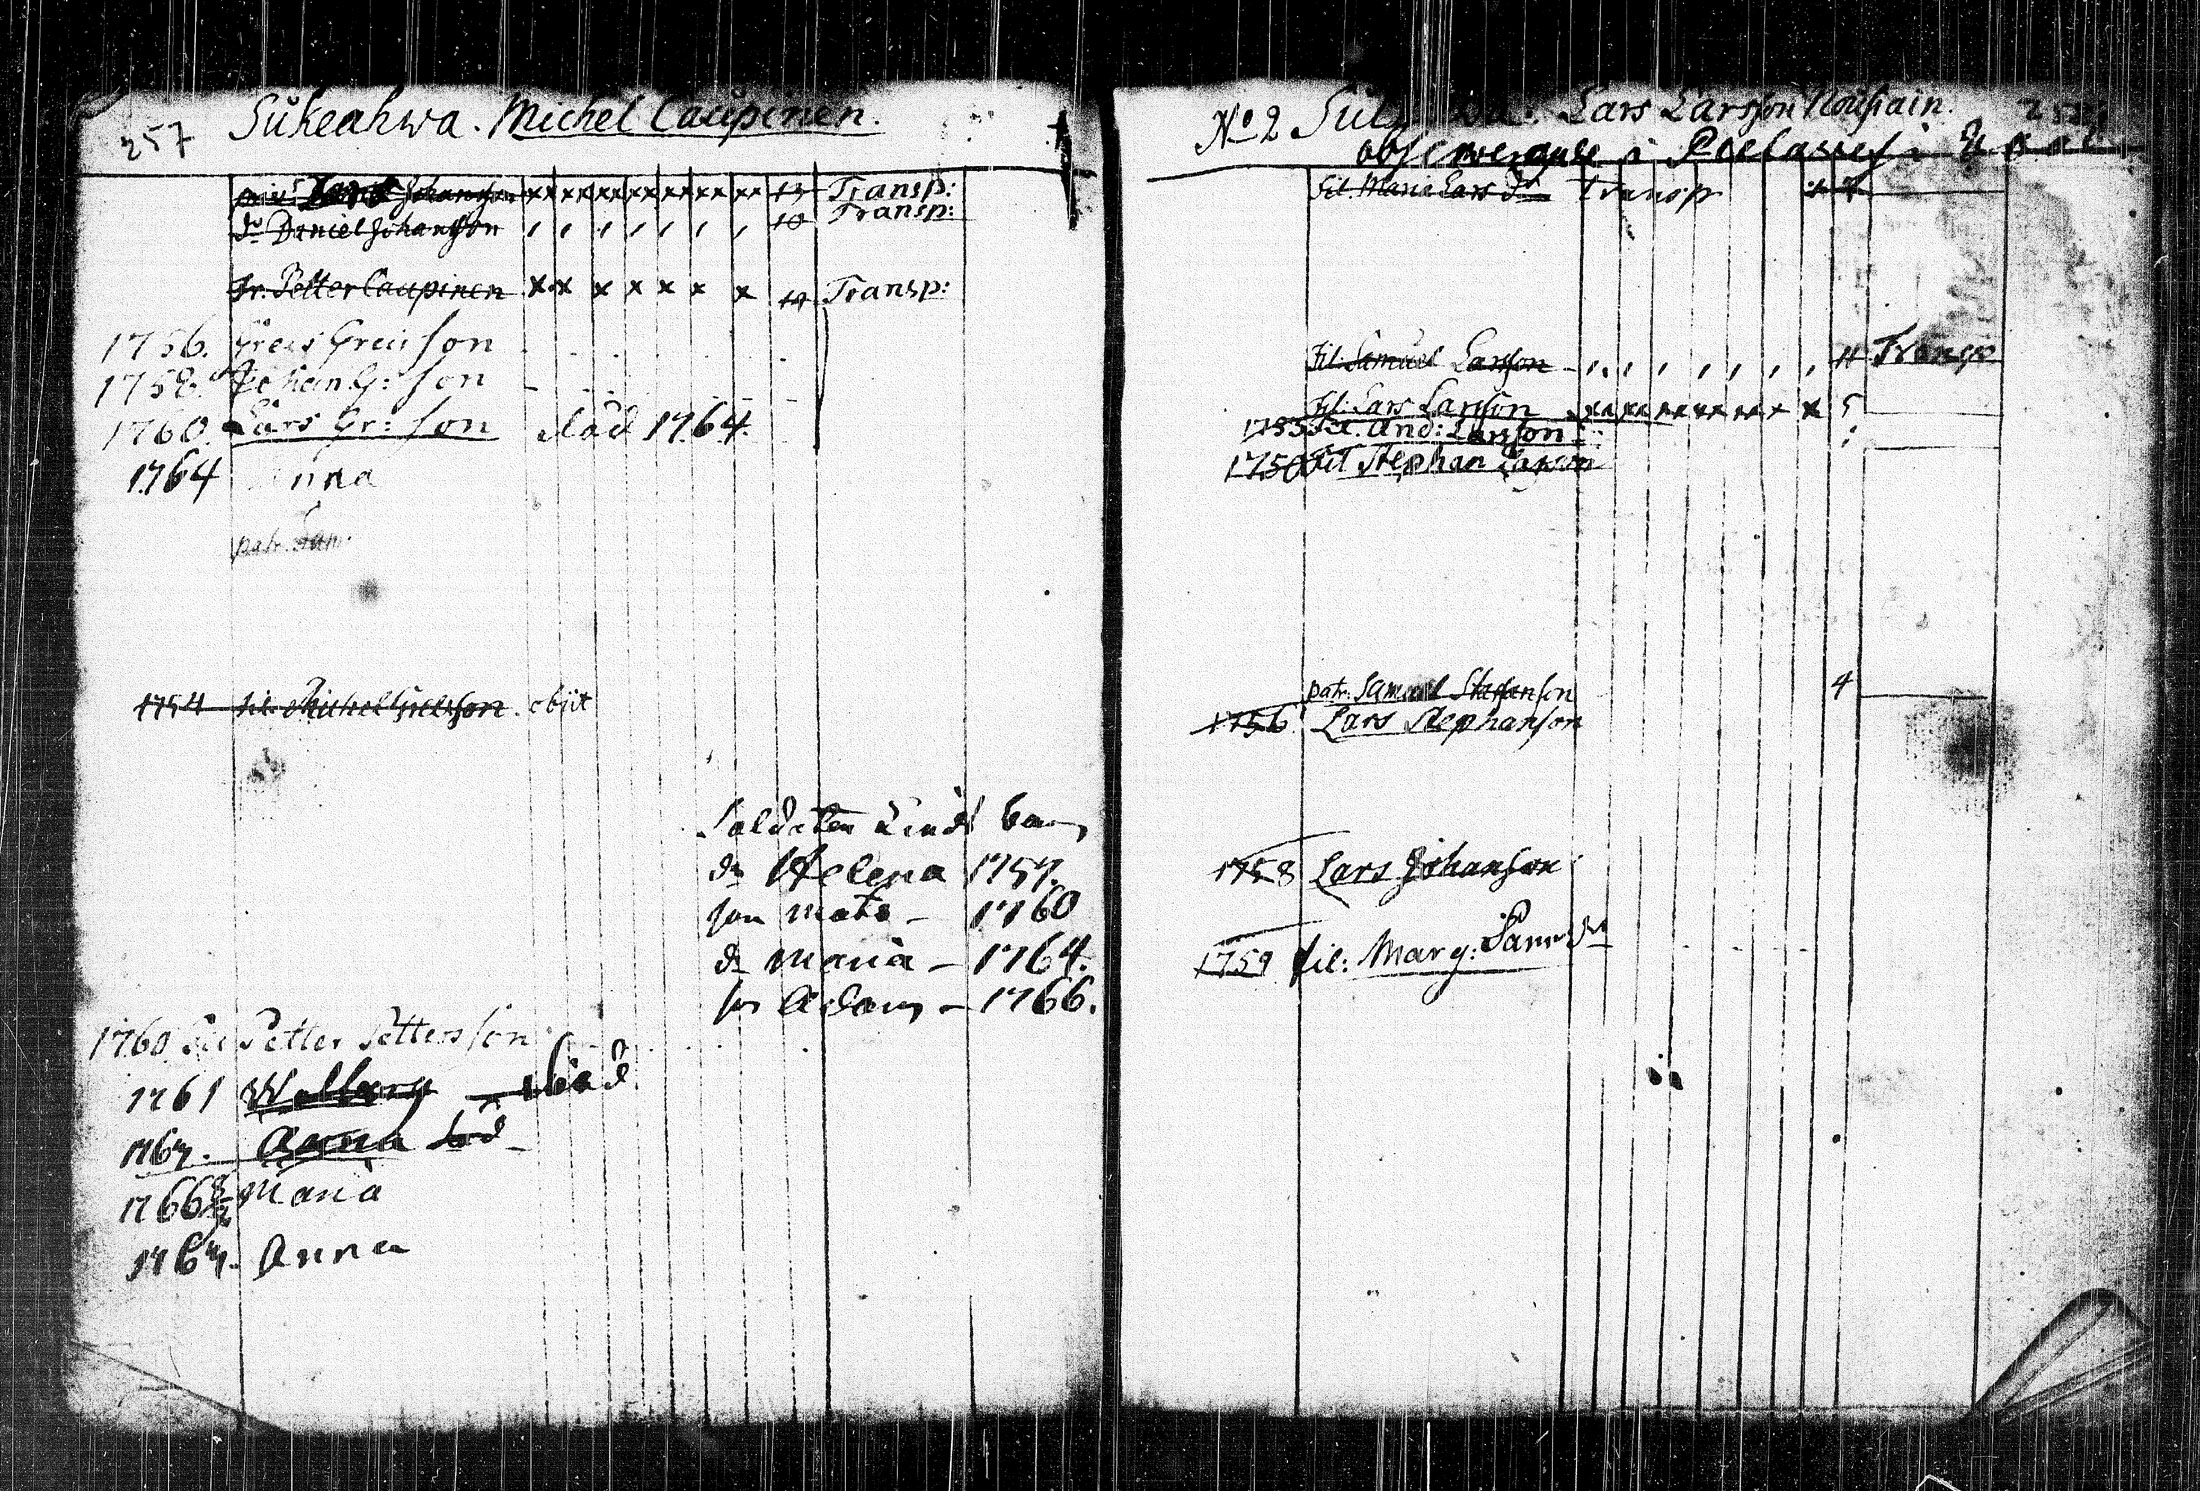 257 Sukeahwa. Michel Caupinen.
Johansson xx xx xx xx xx xx xx 13 Transp:
do Daniel Johansson 10 Transp:
fr. Petter Caupinen x x x x x x x Transp:
1756. Grels Grelsson
1758. Johan Gr: son
1760. Lars Gr: son död 1764.
1764 Anna
patr.
1754 fil. Michel Grelsson. objit
Soldaten Linds barn
dr Helena 1757.
son Mats – 1760
dr Maria – 1764.
son Adam – 1766.
1760 Petter Pettersson
1761 Walborg död
Anna död
1766 Maria
1767. Anna
No 2 Lars Larsson
observerande i
fil. Maria Lars dr Transp
fil. Samuel Larsson 11 Transp
fil. Lars Larsson 5
1753 And: Larsson
1750 fil Stephan Larsson
patr. Samuel Stephansson 4
1756 Lars Stephansson
1758 Lars Johansson
1759 fil: Marg: Sam: dr